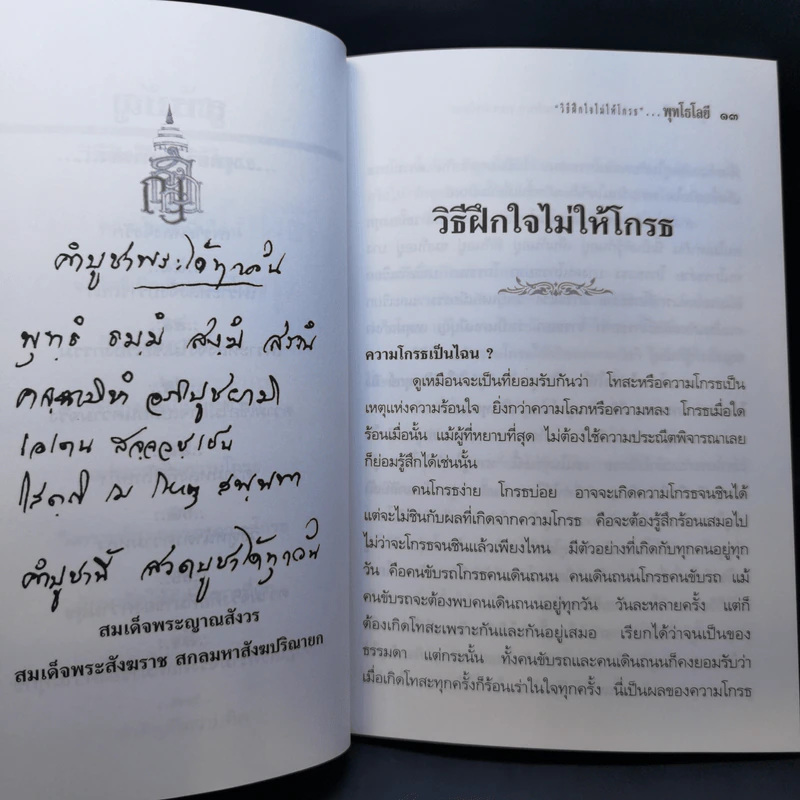 คำบูชาพระได้ทุกวัน
พุทฺธํ ธมฺมํ สงฺฆํ สรณํ
คจฺฉามิหํ อภิปูชยามิ
เอเตน สจฺจวชฺเชน
โสตฺถิ เม โหตุ สพฺพทา
คำบูชานี้ สวดบูชาได้ทุกวัน
สมเด็จพระญาณสังวร
สมเด็จพระสังฆราช สกลมหาสังฆปริณายก
"วิธีฝึกใจไม่ให้โกรธ"...พุทโธโลยี ๑๓
วิธีฝึกใจไม่ให้โกรธ
ความโกรธเป็นไฉน ?
ดูเหมือนจะเป็นที่ยอมรับกันว่า โทสะหรือความโกรธเป็น
เหตุแห่งความร้อนใจ ยิ่งกว่าความโลภหรือความหลง โกรธเมื่อใด
ร้อนเมื่อนั้น แม้ผู้ที่หยาบที่สุด ไม่ต้องใช้ความประณีตพิจารณาเลย
ก็ย่อมรู้สึกได้เช่นนั้น
คนโกรธง่าย โกรธบ่อย อาจจะเกิดความโกรธจนชินได้
แต่จะไม่ชินกับผลที่เกิดจากความโกรธ คือจะต้องรู้สึกร้อนเสมอไป
ไม่ว่าจะโกรธจนชินแล้วเพียงไหน มีตัวอย่างที่เกิดกับทุกคนอยู่ทุก
วัน คือคนขับรถโกรธคนเดินถนน คนเดินถนนโกรธคนขับรถ แม้
คนขับรถจะต้องพบคนเดินถนนอยู่ทุกวัน วันละหลายครั้ง แต่ก็
ต้องเกิดโทสะเพราะกันและกันอยู่เสมอ เรียกได้ว่าจนเป็นของ
ธรรมดา แต่กระนั้น ทั้งคนขับรถและคนเดินถนนก็คงยอมรับว่า
เมื่อเกิดโทสะทุกครั้งก็ร้อนเร่าในใจทุกครั้ง นี่เป็นผลของความโกรธ